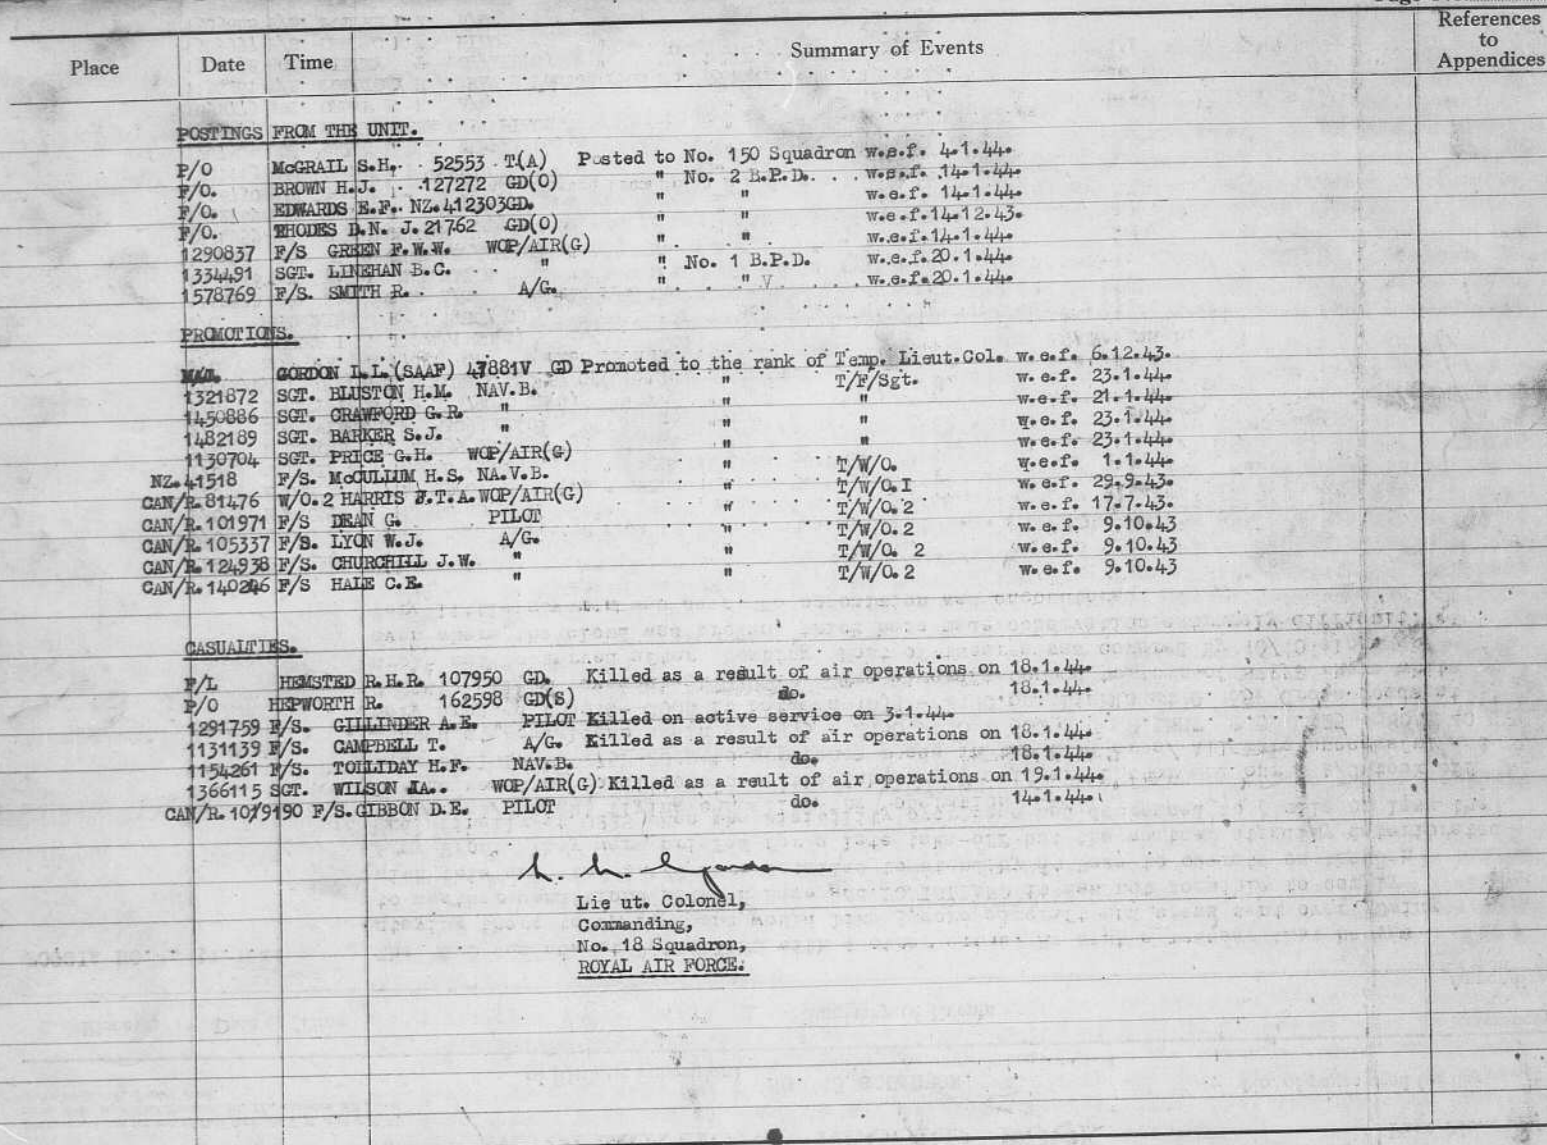 Place Date Time Summary of Events References to Appendices
POSTINGS FROM THE UNIT.
P/O McGRAIL S.H. 52553 T(A) Posted to No. 150 Squadron w.e.f. 4.1.44.
F/O. BROWN H.J. 127272 GD(O) " No. 2 B.P.D. w.e.f. 14.1.44.
F/O. EDWARDS E.F. NZ.412303GD. " " w.e.f. 14.1.44.
F/O. RHODES D.N. J.21762 GD(O) " " w.e.f.14.12.43.
1290837 F/S GREEN F.W.W. WOP/AIR(G) " " w.e.f.14.1.44.
1334491 SGT. LINEHAN B.C. " " No. 1 B.P.D. w.e.f.20.1.44.
1578769 F/S. SMITH R. A/G. " " w.e.f.20.1.44.
PROMOTIONS.
GORDON L.L.(SAAF) 47881V GD Promoted to the rank of Temp. Lieut.Col. w.e.f. 6.12.43.
1321872 SGT. BLUSTON H.M. NAV.B. " T/F/Sgt. w.e.f. 23.1.44.
1450886 SGT. CRAWFORD G.R. " " " w.e.f. 21.1.44.
1482189 SGT. BARKER S.J. " " " w.e.f. 23.1.44.
1130704 SGT. PRICE G.H. WOP/AIR(G) " " w.e.f. 23.1.44.
NZ.41518 F/S. McCULLUM H.S. NA.V.B. " T/W/O. w.e.f. 1.1.44.
CAN/R.81476 W/O.2 HARRIS J.T.A.WOP/AIR(G) " T/W/O.I w.e.f. 29.9.43.
CAN/R.101971 F/S DEAN G. PILOT " T/W/O.2 w.e.f. 17.7.43.
CAN/R.105337 F/S. LYON W.J. A/G. " T/W/O.2 w.e.f. 9.10.43
CAN/R.124938 F/S. CHURCHILL J.W. " " T/W/O. 2 w.e.f. 9.10.43
CAN/R.140246 F/S HALE C.E. " " T/W/O.2 w.e.f. 9.10.43
CASUALTIES.
F/L HEMSTED R.H.R. 107950 GD. Killed as a result of air operations on 18.1.44.
P/O HEPWORTH R. 162598 GD(S) do. 18.1.44.
1291759 F/S. GILLINDER A.E. PILOT Killed on active service on 3.1.44.
1131139 F/S. CAMPBELL T. A/G. Killed as a result of air operations on 18.1.44.
1154261 F/S. TOLLIDAY H.F. NAV.B. do. 18.1.44.
1366115 SGT. WILSON JA.. WOP/AIR(G) Killed as a reult of air operations on 19.1.44.
CAN/R.10/9190 F/S.GIBBON D.E. PILOT do. 14.1.44.
Lie ut. Colonel,
Commanding,
No. 18 Squadron,
ROYAL AIR FORCE.